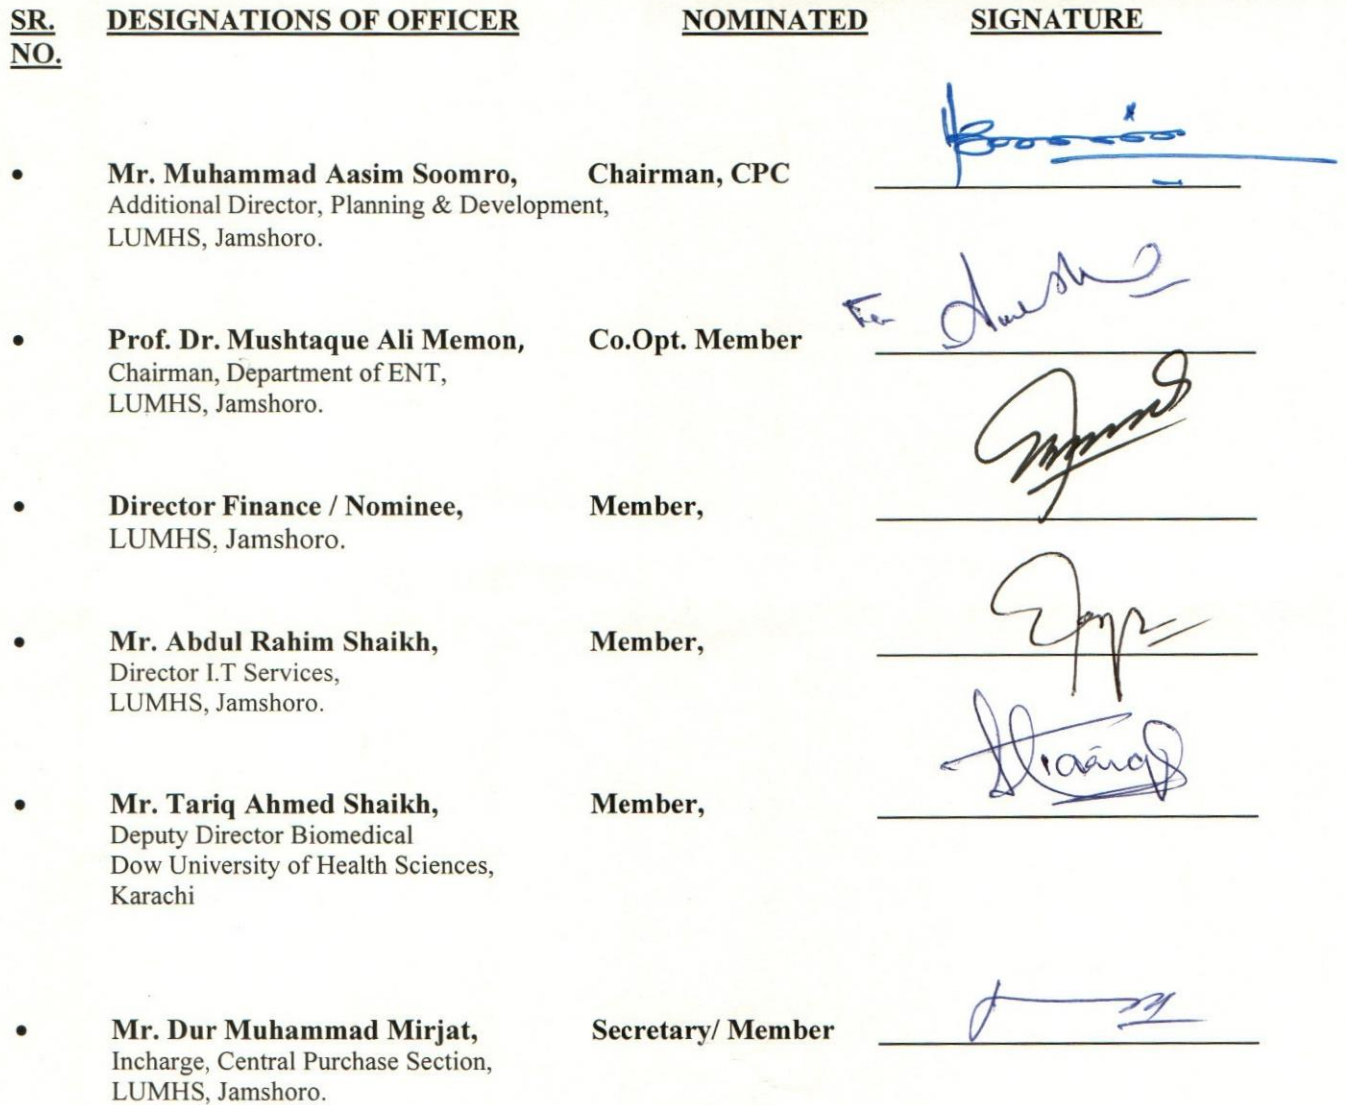 SR. DESIGNATIONS OF OFFICER NOMINATED SIGNATURE
NO.
• Mr. Muhammad Aasim Soomro, Chairman, CPC
Additional Director, Planning & Development,
LUMHS, Jamshoro.
For
• Prof. Dr. Mushtaque Ali Memon, Co.Opt. Member
Chairman, Department of ENT,
LUMHS, Jamshoro.
• Director Finance / Nominee, Member,
LUMHS, Jamshoro.
• Mr. Abdul Rahim Shaikh, Member,
Director I.T Services,
LUMHS, Jamshoro.
• Mr. Tariq Ahmed Shaikh, Member,
Deputy Director Biomedical
Dow University of Health Sciences,
Karachi
• Mr. Dur Muhammad Mirjat, Secretary/ Member
Incharge, Central Purchase Section,
LUMHS, Jamshoro.